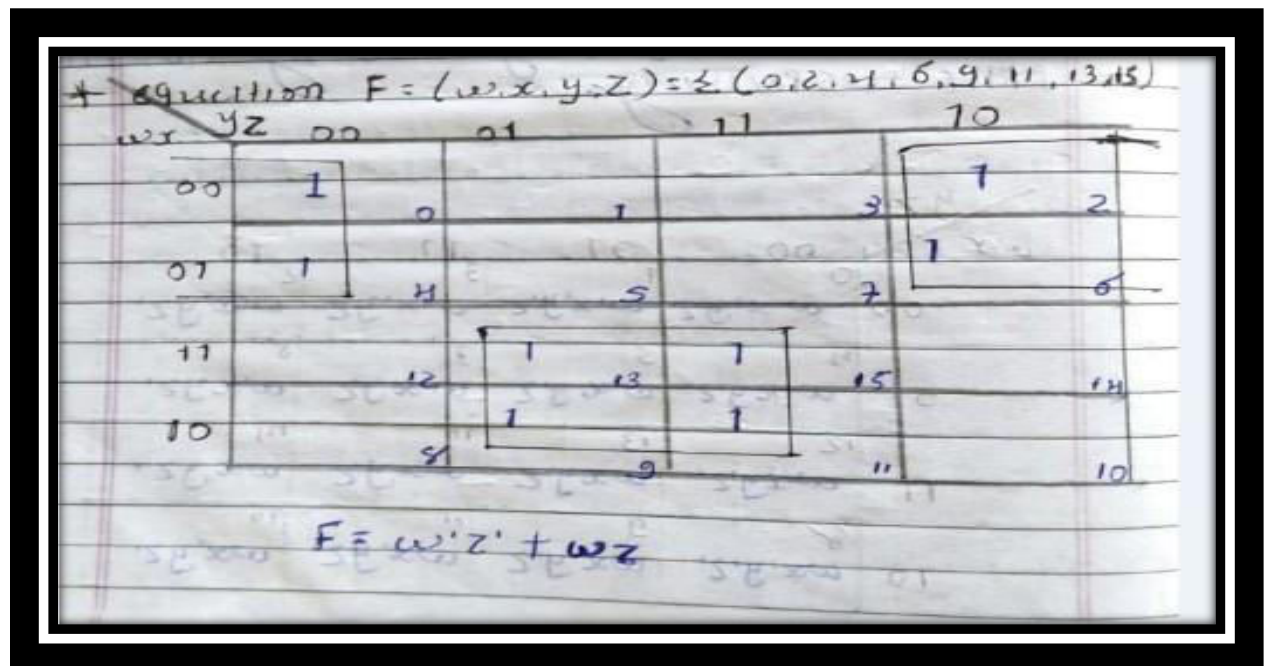 * equation F = (w,x,y,z) = Σ (0,2,4,6,9,11,13,15)
wx yz 00 01 11 10
00 1 0 1 3 1 2
01 1 4 5 7 1 6
11 12 1 13 1 15 14
10 8 1 9 1 11 10
F = w'z' + wz